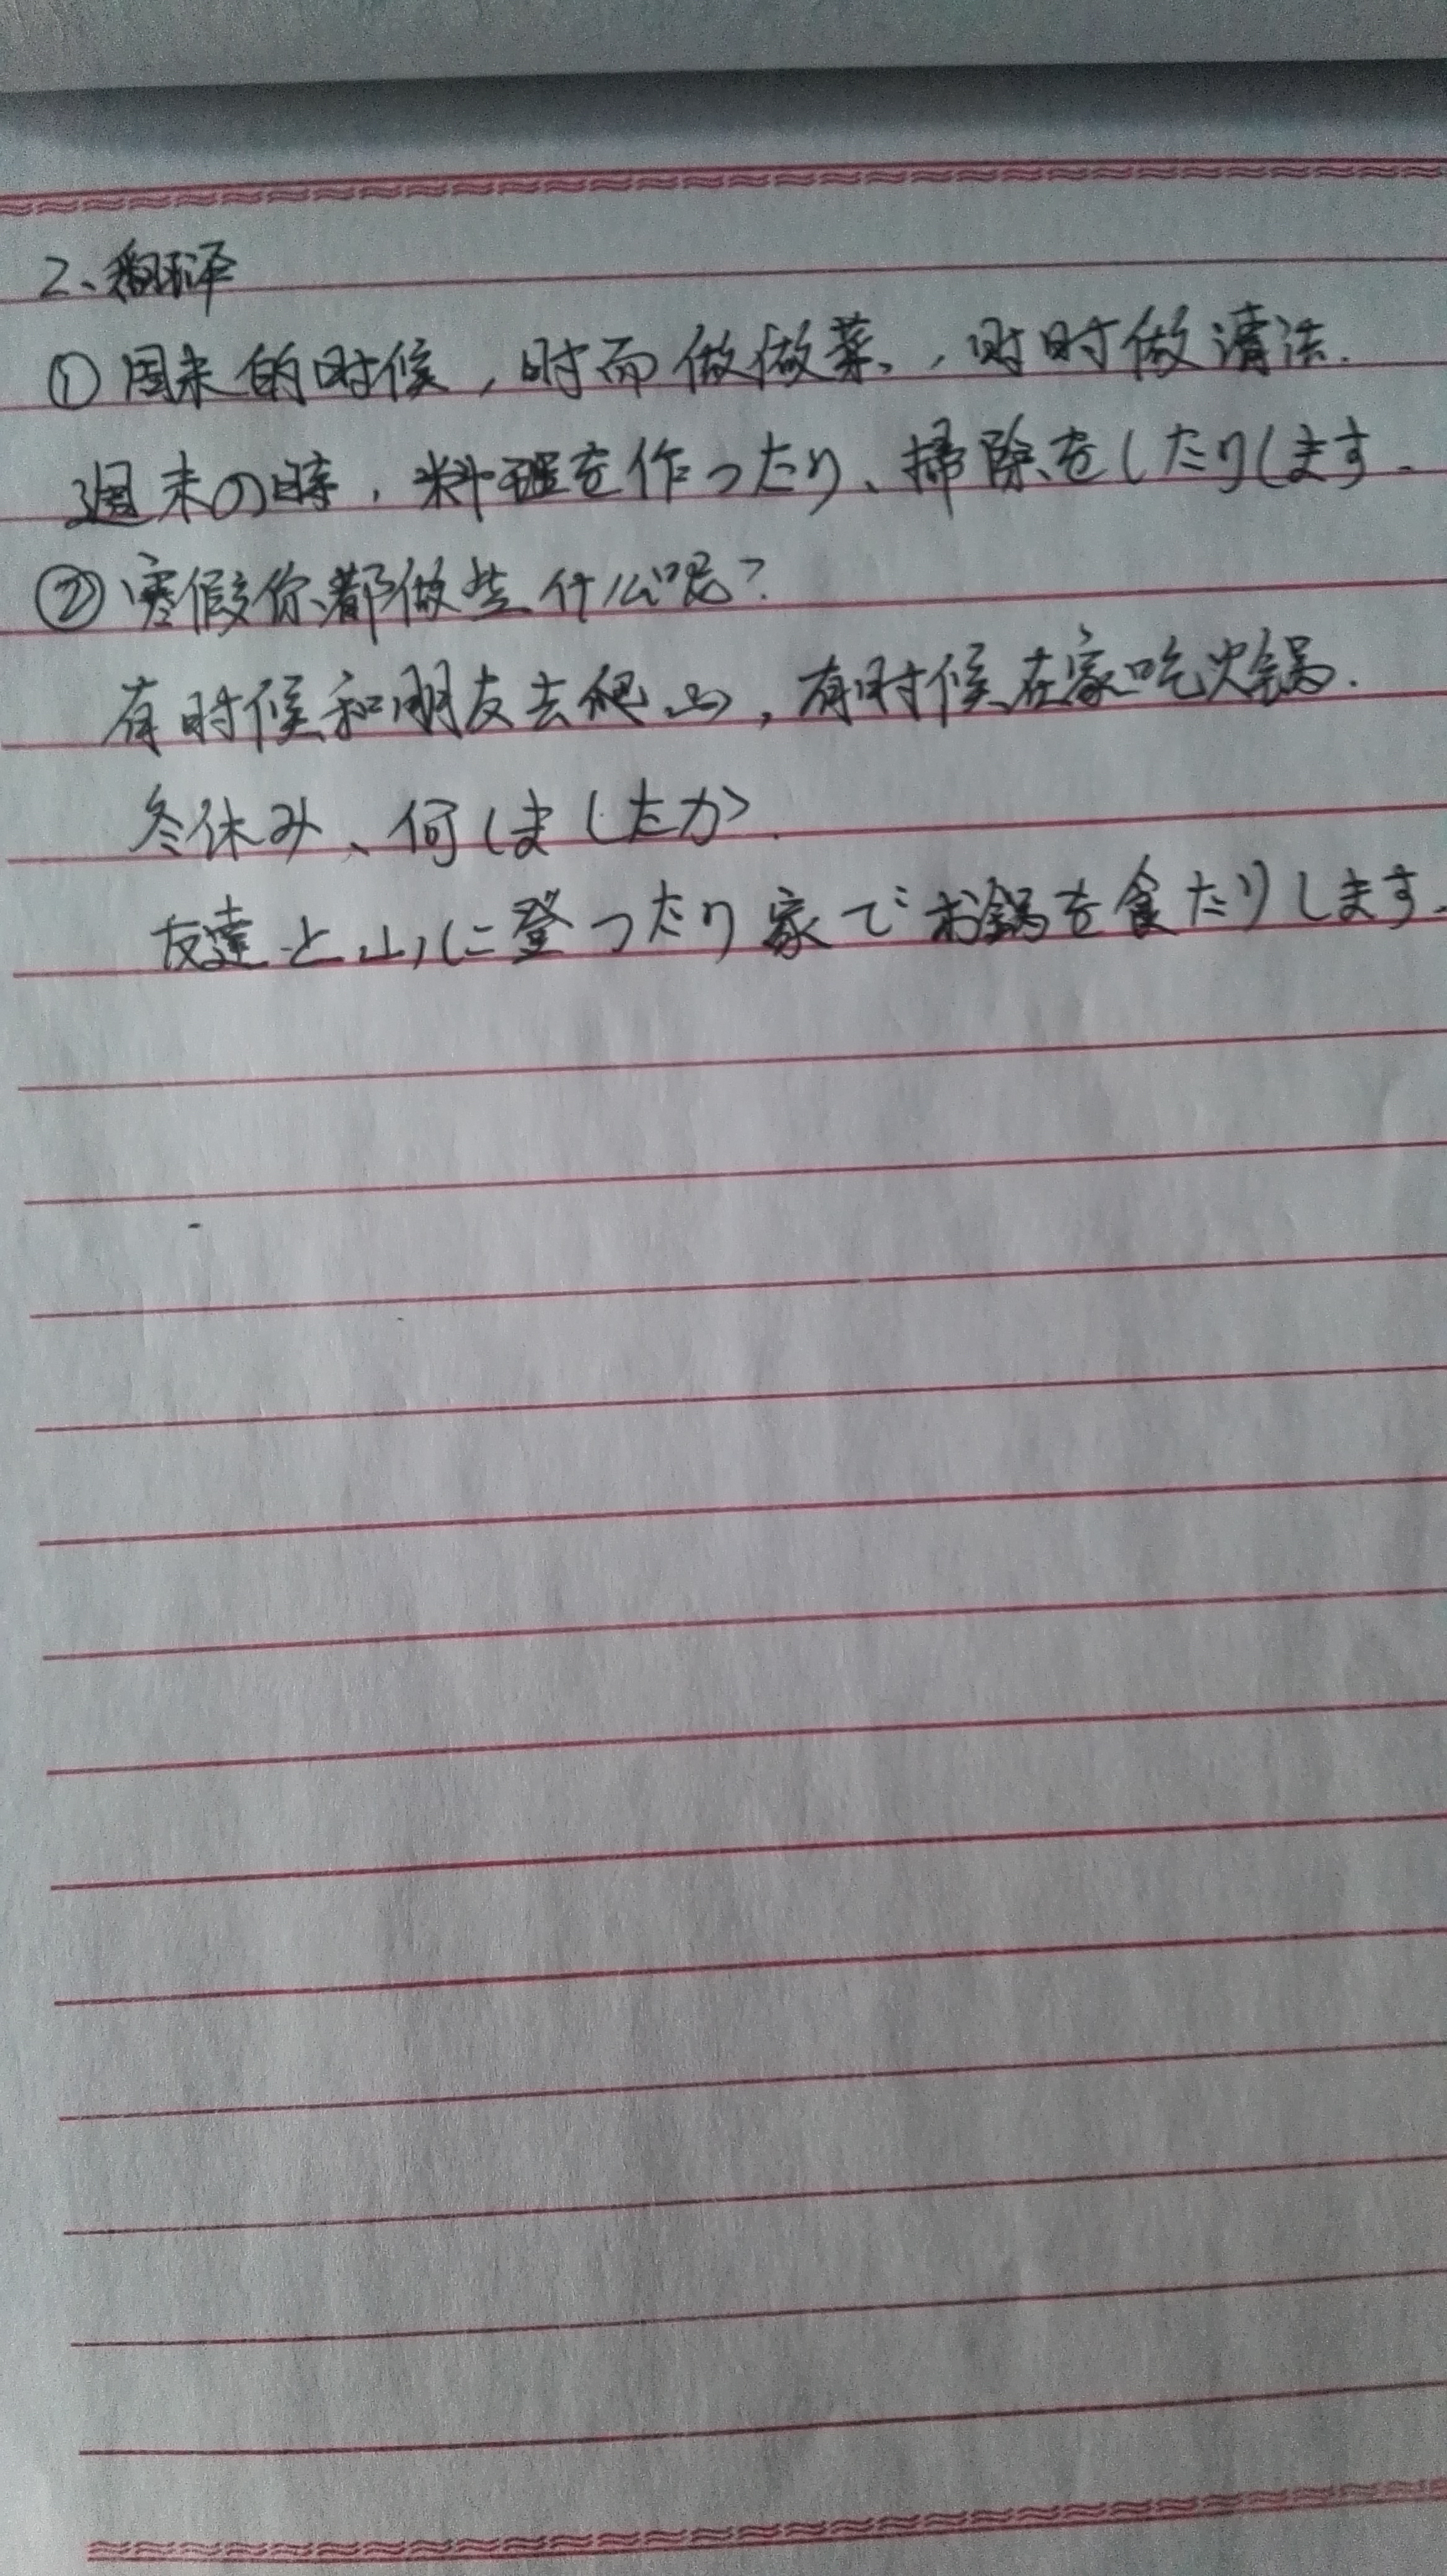 2、翻译
①周末的时候,时而做做菜,时时做清洁.
週末の時,料理を作ったり、掃除をしたりします.
②寒假你都做些什么呢?
有时候和朋友去爬山,有时候在家吃火锅.
冬休み、何しましたか.
友達と山に登ったり家でお鍋を食たりします.